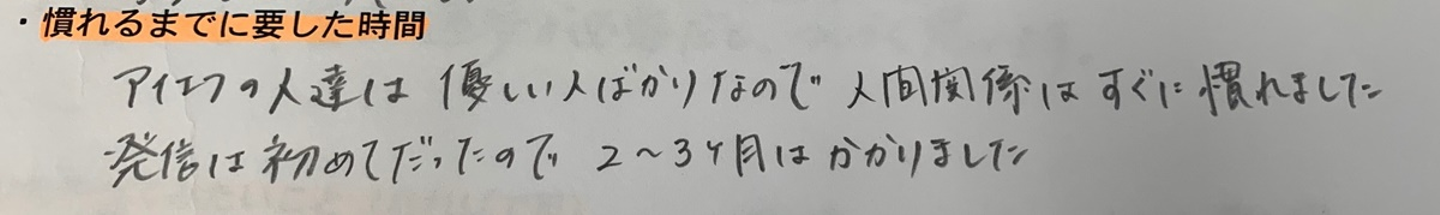 ・慣れるまでに要した時間
アイエフの人達は 優しい人ばかりなので 人間関係は すぐに 慣れました
発信は 初めてだったので 2〜3ヶ月は かかりました